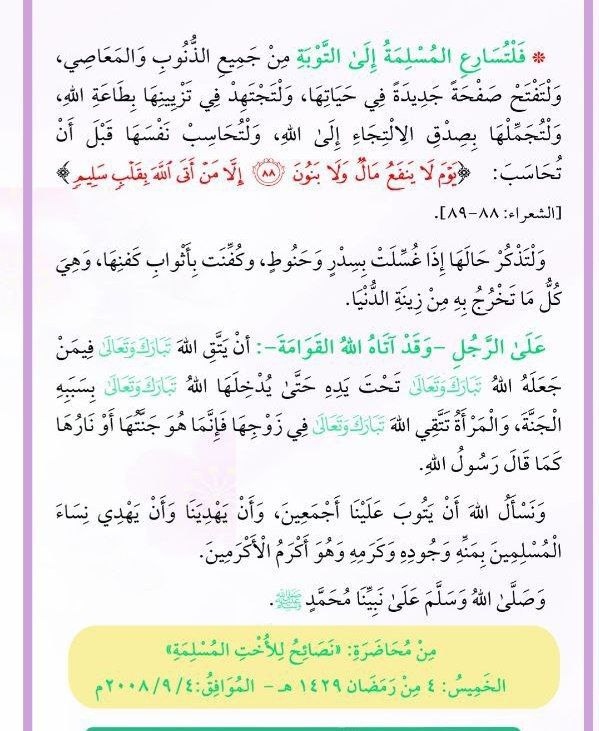 * فَلْتُسَارِعِ المُسْلِمَةُ إِلَىٰ التَّوْبَةِ مِنْ جَمِيعِ الذُّنُوبِ وَالمَعَاصِي،
وَلْتَفْتَحْ صَفْحَةً جَدِيدَةً فِي حَيَاتِهَا، وَلْتَجْتَهِدْ فِي تَزْيِينِهَا بِطَاعَةِ اللهِ،
وَلْتُجَمِّلْهَا بِصِدْقِ الِالْتِجَاءِ إِلَىٰ اللهِ، وَلْتُحَاسِبْ نَفْسَهَا قَبْلَ أَنْ
تُحَاسَبَ: ﴿يَوْمَ لَا يَنفَعُ مَالٌ وَلَا بَنُونَ ۝٨٨ إِلَّا مَنْ أَتَى ٱللَّهَ بِقَلْبٍ سَلِيمٍ﴾
[الشعراء: ٨٨-٨٩].
وَلْتَذْكُرْ حَالَهَا إِذَا غُسِّلَتْ بِسِدْرٍ وَحَنُوطٍ، وَكُفِّنَت بِأَثْوابِ كَفَنِهَا، وَهِيَ
كُلُّ مَا تَخْرُجُ بِهِ مِنْ زِينَةِ الدُّنْيَا.
عَلَىٰ الرَّجُلِ -وَقَدْ آتَاهُ اللهُ القَوَامَةَ-: أَنْ يَتَّقِ اللهَ تَبَارَكَ وَتَعَالَىٰ فِيمَنْ
جَعَلَهُ اللهُ تَبَارَكَ وَتَعَالَىٰ تَحْتَ يَدِهِ حَتَّىٰ يُدْخِلَهَا اللهُ تَبَارَكَ وَتَعَالَىٰ بِسَبَبِهِ
الْجَنَّةَ، وَالْمَرْأَةُ تَتَّقِي اللهَ تَبَارَكَ وَتَعَالَىٰ فِي زَوْجِهَا فَإِنَّمَا هُوَ جَنَّتُهَا أَوْ نَارُهَا
كَمَا قَالَ رَسُولُ اللهِ.
وَنَسْأَلُ اللهَ أَنْ يَتُوبَ عَلَيْنَا أَجْمَعِينَ، وَأَنْ يَهْدِيَنَا وَأَنْ يَهْدِي نِسَاءَ
الْمُسْلِمِينَ بِمَنِّهِ وَجُودِهِ وَكَرَمِهِ وَهُوَ أَكْرَمُ الْأَكْرَمِينَ.
وَصَلَّىٰ اللهُ وَسَلَّمَ عَلَىٰ نَبِيِّنَا مُحَمَّدٍ ﷺ.
مِنْ مُحَاضَرَةِ: «نَصَائِحُ لِلأُخْتِ المُسْلِمَةِ»
الخَمِيسُ: ٤ مِنْ رَمَضَان ١٤٢٩ هـ - المُوَافِقُ: ٤/ ٩/ ٢٠٠٨م